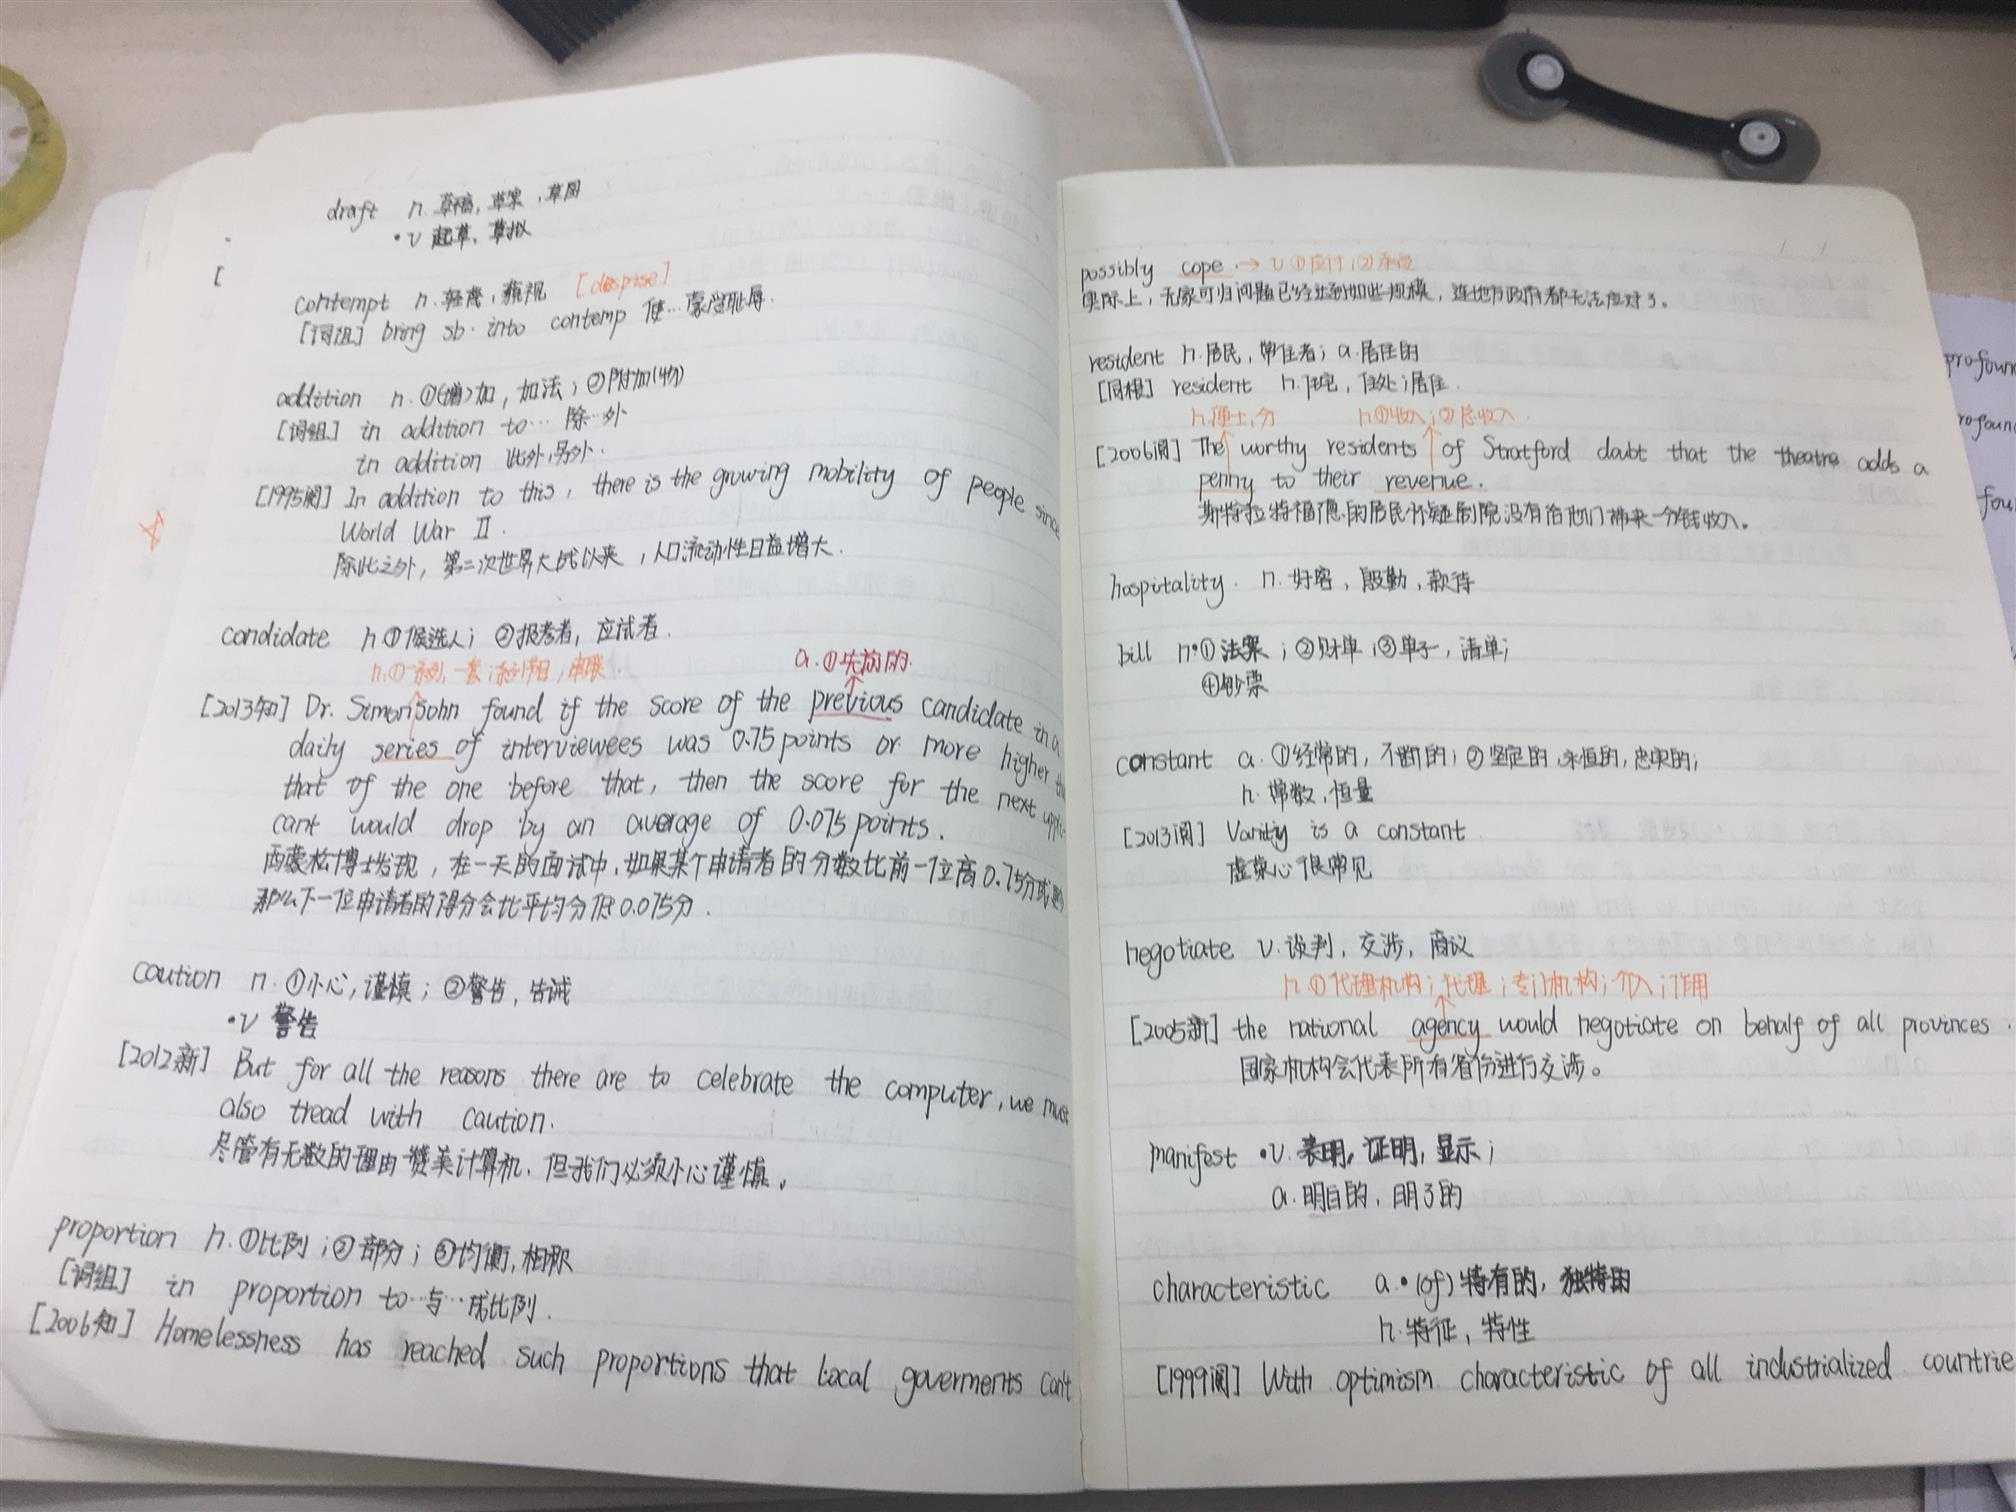 draft n. 草稿, 草案, 草图
•v 起草, 草拟
[
contempt n. 轻蔑, 藐视 [despise]
[词组] bring sb. into contemp 使…蒙受耻辱.
addition n. ①(增)加, 加法; ②附加(物)
[词组] in addition to… 除…外
in addition 此外,另外.
[1995阅] In addition to this, there is the growing mobility of people since
World War II.
除此之外, 第二次世界大战以来, 人口流动性日益增大.
candidate n ①候选人; ②报考者, 应试者.
n.①一系列, 一套; 系列节目; 串联. a.①先前的.
[2013知] Dr. Simonsohn found if the score of the previous candidate in a
daily series of interviewees was 0.75 points or more higher
that of the one before that, then the score for the next
cant would drop by an average of 0.075 points.
西蒙松博士发现, 在一天的面试中, 如果某个申请者的分数比前一位高0.75分或
那么下一位申请者的得分会比平均分低0.075分.
caution n. ①小心, 谨慎; ②警告, 告诫
•v 警告
[2012新] But for all the reasons there are to celebrate the computer, we must
also tread with caution.
尽管有无数的理由赞美计算机, 但我们必须小心谨慎。
proportion n. ①比例; ②部分; ③均衡, 相称
[词组] in proportion to…与…成比例.
[2006知] Homelessness has reached such proportions that local goverments can't
possibly cope → v ①应付; ②承受
实际上, 无家可归问题已经达到如此规模, 连地方政府都无法应对了。
resident n. 居民, 常住者; a. 居住的
[同根] resident n. 住宅, 住处; 居住.
n.便士,分 n ①收入; ②总收入.
[2006阅] The worthy residents of Stratford doubt that the theatre adds a
penny to their revenue.
斯特拉特福德的居民怀疑剧院没有给他们带来一分钱收入。
hospitality. n. 好客, 殷勤, 款待
bill n•① 法案; ②账单; ③单子, 清单;
④钞票
constant a. ①经常的, 不断的; ②坚定的, 永恒的, 忠实的;
n. 常数, 恒量
[2013阅] Vanity is a constant.
虚荣心很常见
negotiate v. 谈判, 交涉, 商议
n. ①代理机构; 代理; 专门机构; 介入; 作用
[2005新] the national agency would negotiate on behalf of all provinces.
国家机构会代表所有省份进行交涉。
manifest •v. 表明, 证明, 显示;
a. 明白的, 明了的
characteristic a.•(of) 特有的, 独特的
n. 特征, 特性
[1999阅] With optimism characteristic of all industrialized countrie